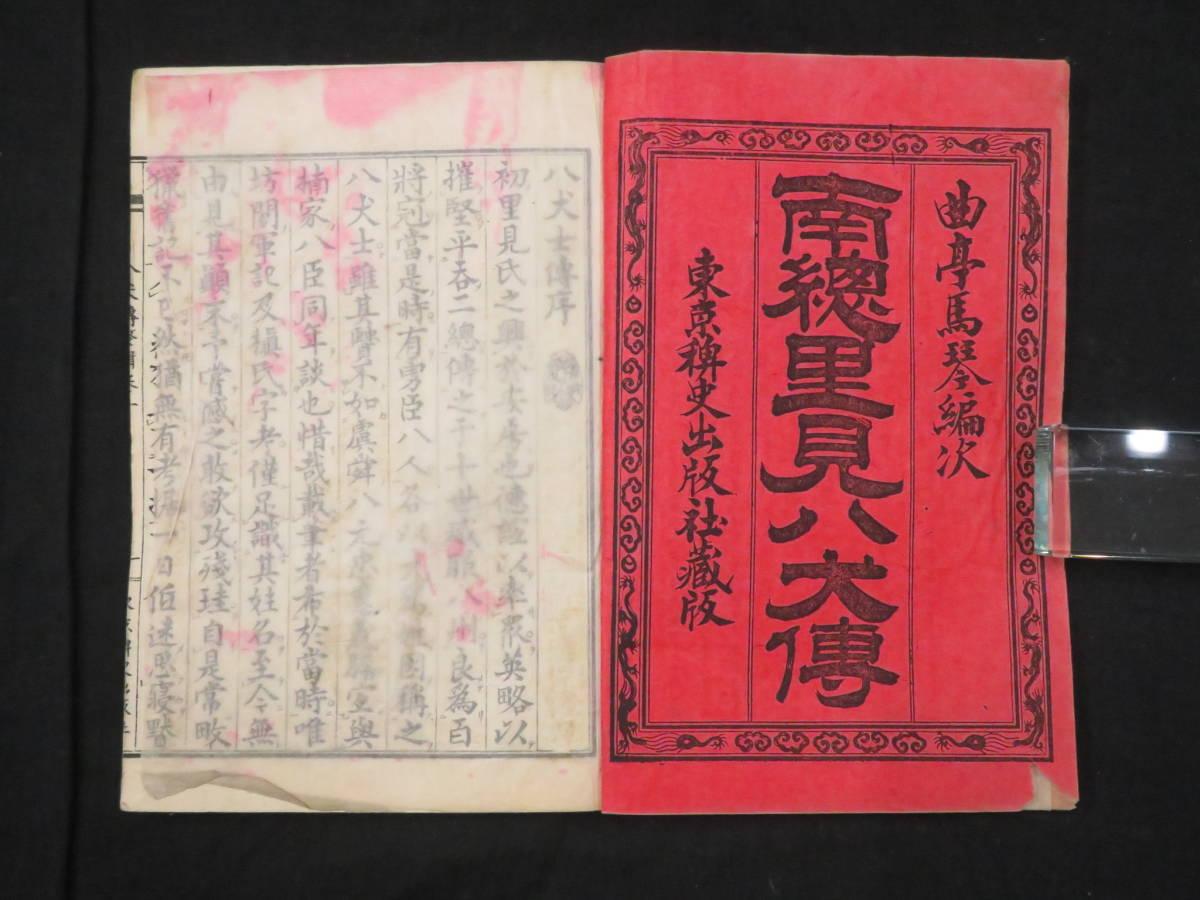 曲亭馬琴編次
南總里見八犬傳
東京稗史出版社藏版
八犬士傳序
初里見氏之興於安房也德誼以率衆英略以
摧堅平吞二總傳之于十世威服八州良爲百
將冠當是時有勇臣八人各以 爲姓因稱之
八犬士雖其賢不如虞舜八元 宜與
楠家八臣同年談也惜哉載筆者希於當時唯
坊間軍記及槇氏字考僅足識其姓名至今無
由見其顚末予嘗感之敢欲攻殘珪自是常畋
獵舊記不已然猶無有考據一日低迷思寢